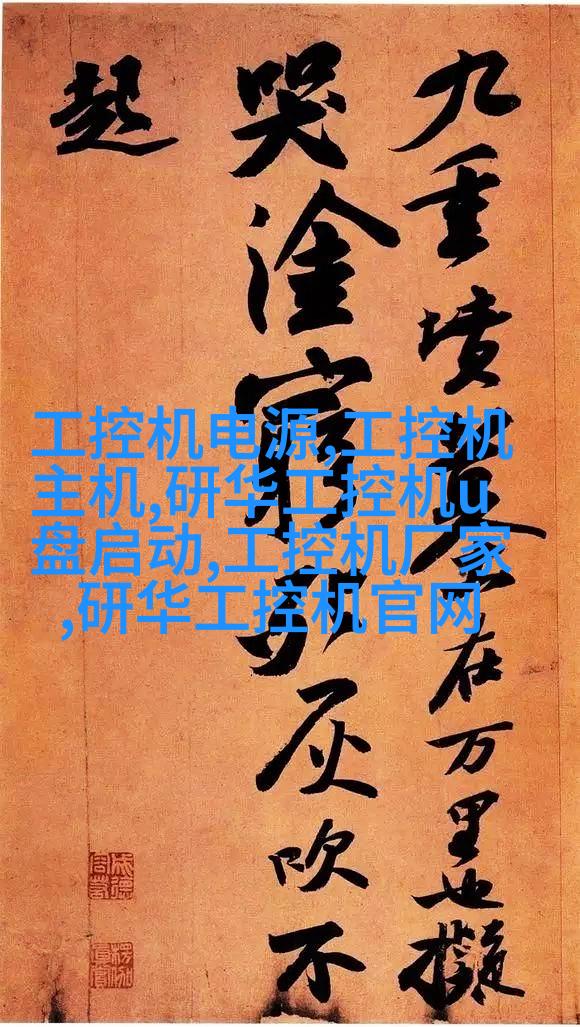 九重墳墓在万里也擬
哭塗窮死灰吹不
起
成德
容若
楞伽
真賞
工控机电源,工控机
主机,研华工控机u
盘启动,工控机厂家
,研华工控机官网